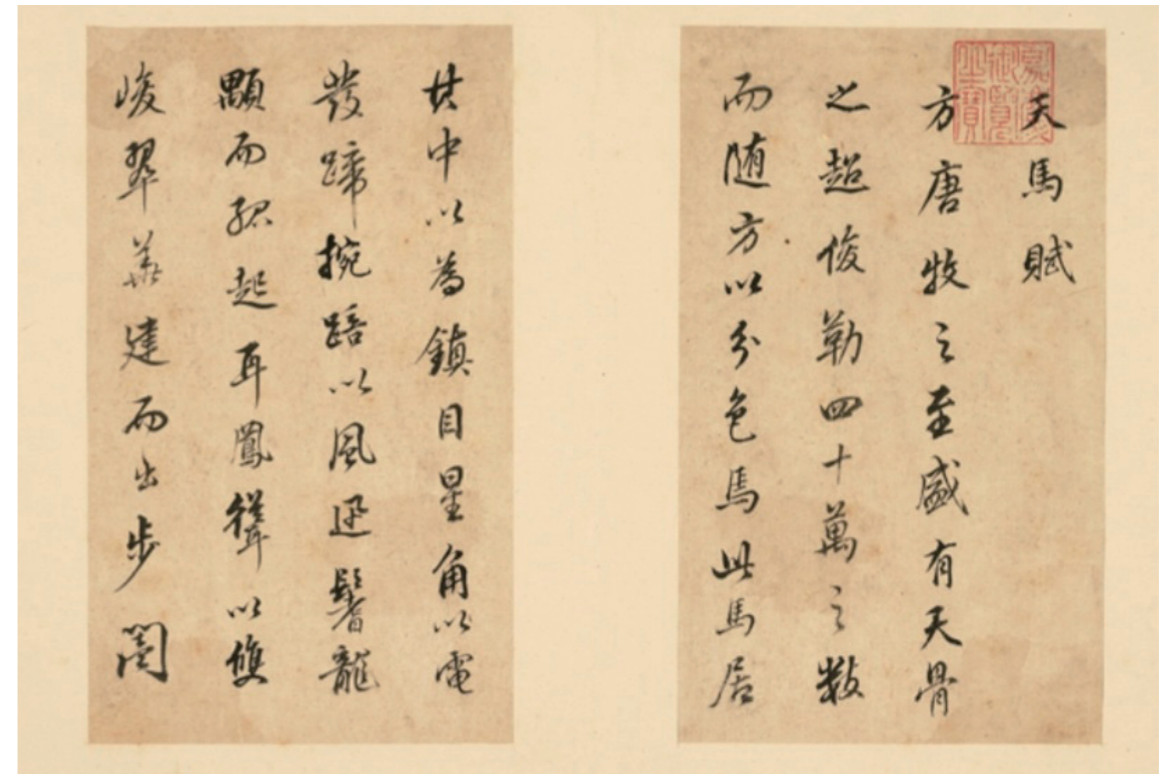 嘉慶
御覽
之寶
天馬賦
方唐牧之至盛有天骨
之超俊勒四十萬之數
而随方以分色馬此馬居
其中以為鎮目星角以電
發蹄捥踣以風迅鬐龍
顒而孤起耳鳳聳以雙
峻翠華建而出步閶